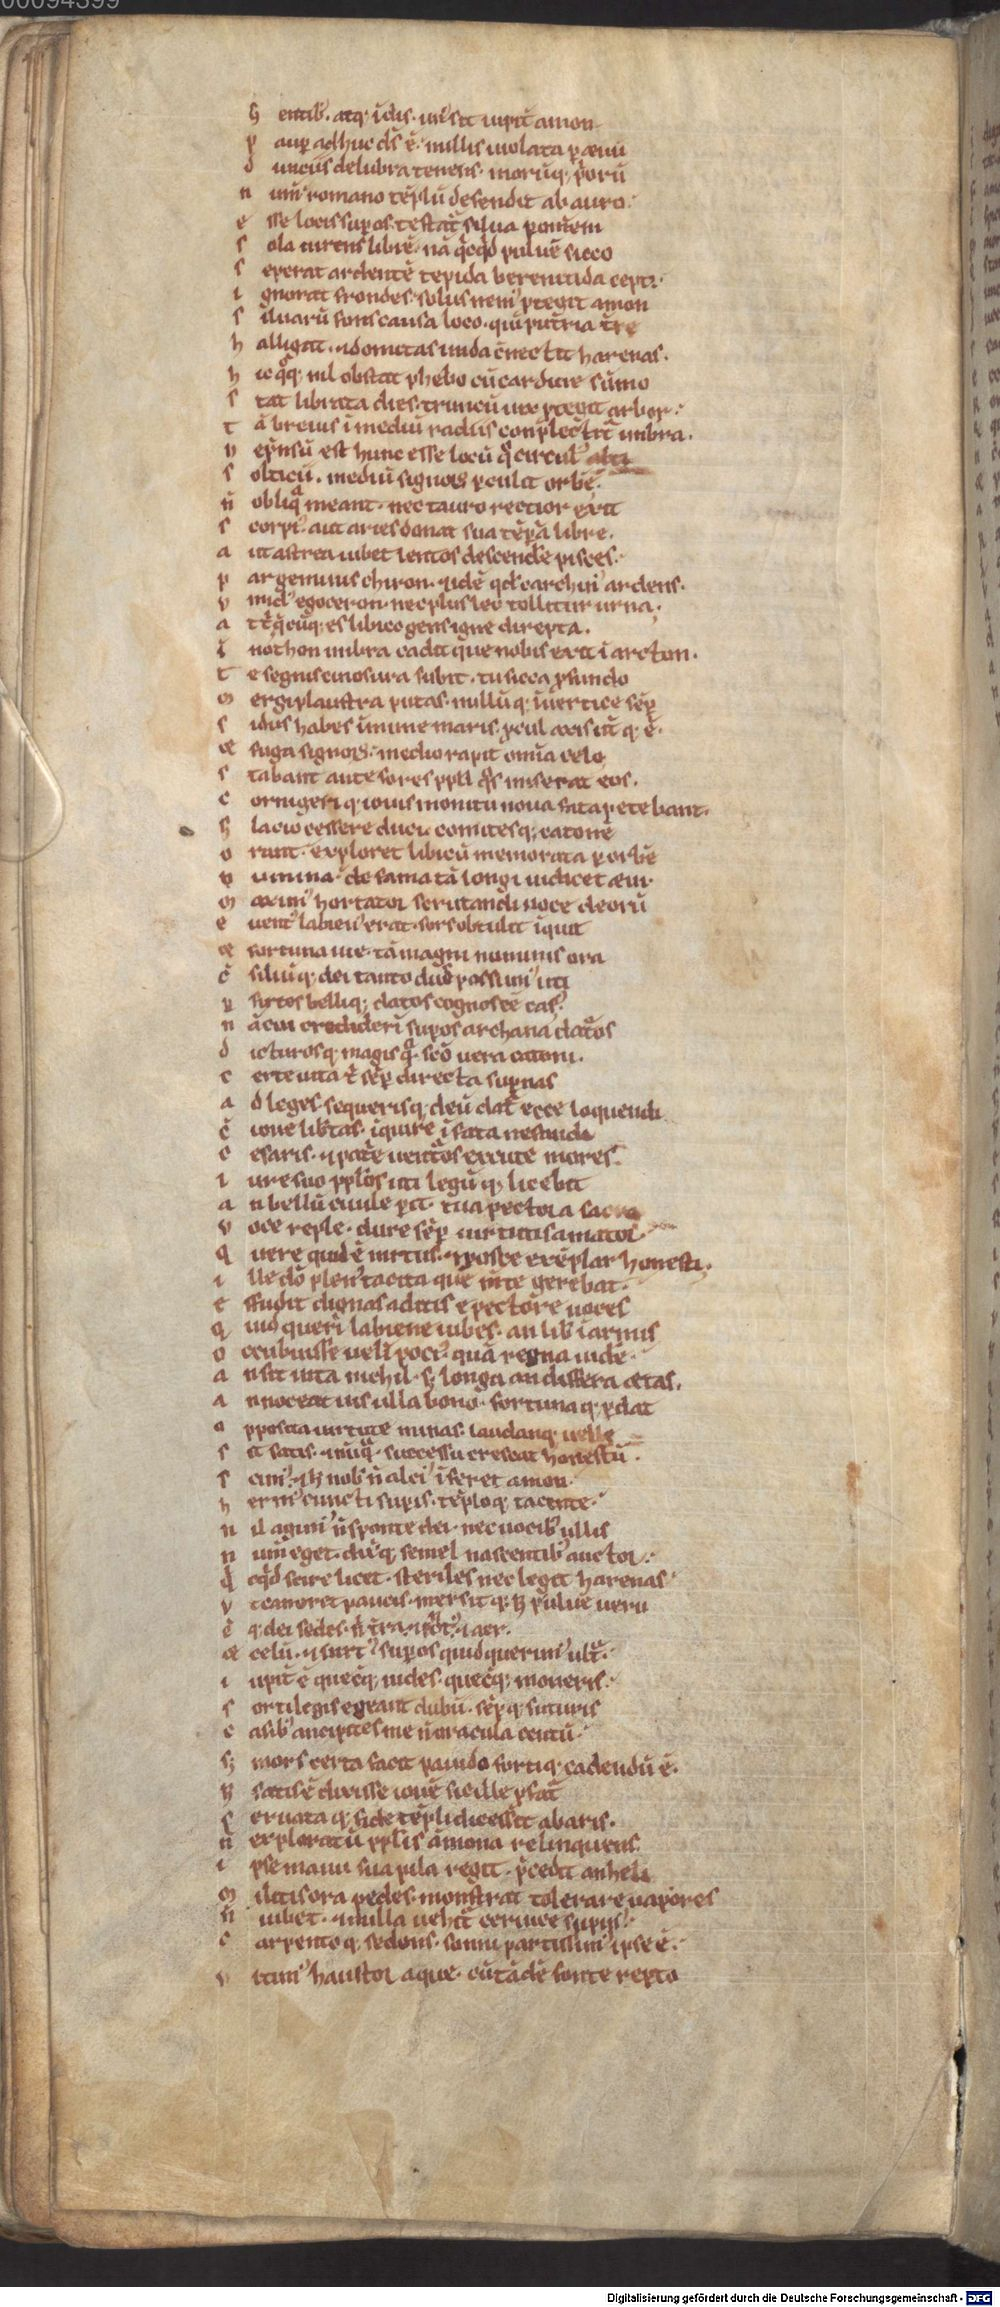 00094399
S; entib. atq; idis. un' sit iupit amon
p aup adhuc ds e. nullis uiolata p æuu
d iuiciis delubra tenens. moruq; p̄oru
n um' romano teplu defendit ab auro.
e sse locis supos. testat silua p omnem
s ola uirens libie. na q̄cqd puluē sicco
s eperat ardentē tepida berenicida lepti.
i gnorat frondes. solus nem' ptegit amon
s iluarū fons causa loco. qui putria tre
h alligat. 7 domitas unda ɔnectit harenas.
h ic qq; nil obstat phebo cū cardine sūmo
s tat librata dies. truncū uix ptegit arbor.
t ā breuis ī mediū radiis conplectit umbra.
d epnsū est hunc esse locū q̄ circul' alti
s olticii. mediū signoꝝ pculit orbē.
n̄ obliq meant. nec tauro rectior exit
s corpi'. aut aries donat sua tēpa libre.
a ut astrea iubet lentos descendē pisces.
p ar geminus chiron. 7 idē qd carchin' ardens.
v mid' egoceron. nec plus leo tollitur urna.
a t t q̄cūq; es libico gens igne direpta.
ī nothon umbra cadit que nobis exit ī arcton.
t e segnis cinosura subit. tu sicca pfundo
m ergi plaustra putas. nullūq; ī uertice sēp
s idus habes īmune maris. pcul axis utq; ē.
& fuga signoꝝ. medio rapit omia celo
s tabant ante fores ppli q̄s miserat eos.
c ornigeriq; iouis monitu noua fata petebant.
S; lacio cessere duci. comitesq; catonē
o rant. exploret libicū memorata p orbē
n umina. de fama tā longi iudicet æui.
m axim' hortator scrutandi uoce deorū
e uent' labien' erat. sors obtulit iquit
& fortuna uie. tā magni numinis ora
c̄ siliūq; dei tanto duce possum' uti
p sirtes belliq; datos cognoscē cas'.
n ā cui crediderī supos archana datos
d icturosq; magis q̄. scō uera catoni.
c erte uita t̄ sēp directa supnas
a d leges. sequerisq; deū. dat ecce loquendi
c̄ ioue libtas. īquire ī fata nefandi
c esaris. 7 patē uentos excute mores.
i ure suo pplis uti legūq; licebit
a n bellū ciuile pit. tua pectora sacra
v oce reple. dure sēp uirtutis amator.
q uere quid ē uirtus. 7 posce exēplar honesti.
i lle dō plen' tacita quē mte gerebat.
e ffudit dignas aditis e pectore uoces
q uid queri labiene iubes. an lib ī armis
o ccubuisse uelī poci'. quā regna uidē
a n sit uita nichil. S; longa an differa ætas.
a n noceat uis ulla bono. fortunaq; pdat
o pposita uirtute minas. laudanq; uelle
s it satis. 7 nūq̄. successu crescat honestū.
s cim'. 7 H; nob n̄ alci' īseret amon.
h erm' cuncti supis. tēploq; tacente.
n il agim' n̄ sponte dei. nec uocib ullis
n um eget. dixitq; semel nascentib auctor.
q̄ cqd scire licet. steriles nec legit harenas
v t caneret paucis. mersitq; H; puluē ueru
ē q; dei sedes. n̄ t̄ra. 7 pont'. 7 aer.
& celū. 7 uirt'. supos quid querim' ult̄.
i upit ē quecq; uides. quecq; moueris.
s ortilegis egeant dubii. sēpq; futuris
c asib ancipites me n̄ oracula certū
S; mors certa facit pauido fortiq; cadendū ē.
H satis ē dixisse iouē sic ille pfat
s eruataq; fide tēpli dicessit ab aris.
n̄ exploratū pplis āmona relinquens
i pse manu sua pila regit. p̄cedit anheli
m ilitis ora pedes. monstrat tolerare uapores
n̄ iubet. 7 nulla uehit ceruice supin'.
c arpentoq; sedens. sōmi partissim' ipse ē.
v ltim' haustor aque. cū tādē fonte repto
Digitalisierung gefördert durch die Deutsche Forschungsgemeinschaft - DFG